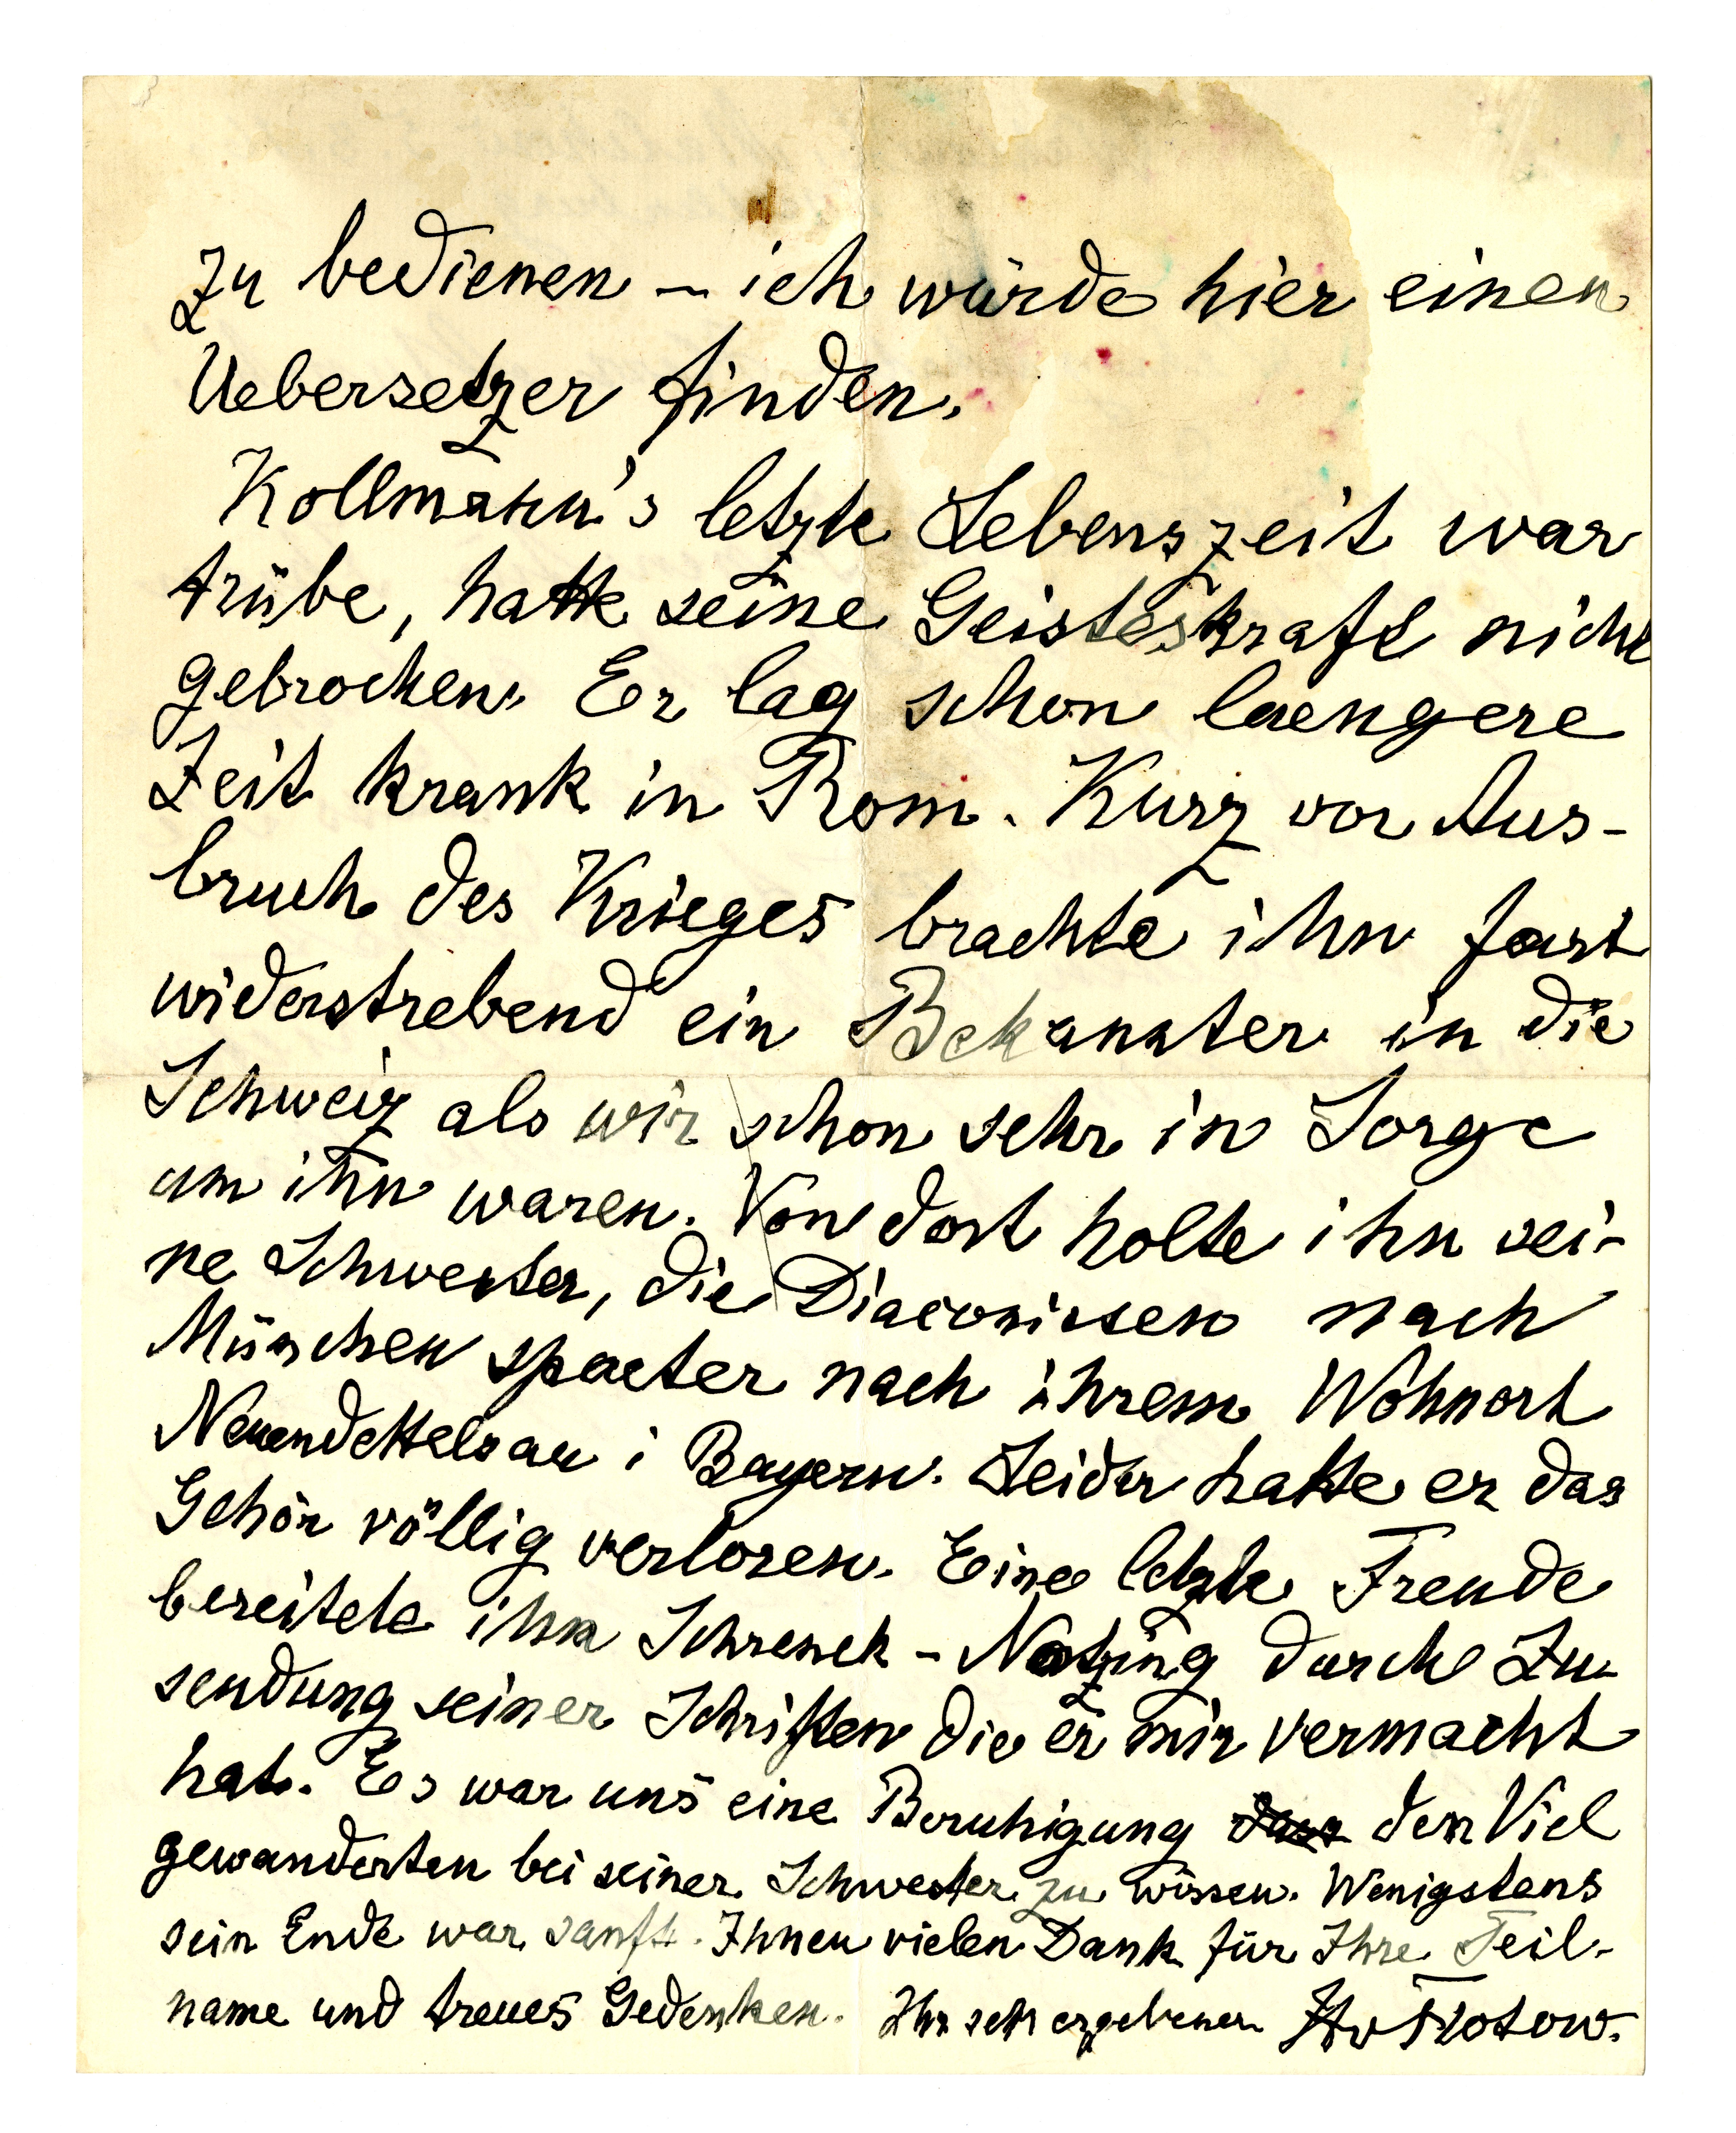 Zu bedienen – ich würde hier einen
Uebersetzer finden.
Kollmann's letzte Lebenszeit war
trübe, hatte seine Geisteskraft nicht
gebrochen. Er lag schon laengere
Zeit krank in Rom. Kurz vor Aus-
bruch des Krieges brachte ihn fast
widerstrebend ein Bekannter in die
Schweiz als wir schon sehr in Sorge
um ihn waren. Von dort holte ihn sei-
ne Schwester, die Diaconissen nach
München spaeter nach ihrem Wohnort
Neuendettelsau i Bayern. Leider hatte er das
Gehör völlig verloren. Eine letzte Freude
bereitete ihm Schrenck-Notzing durch Zu-
sendung seiner Schriften die er mir vermacht
hat. Es war uns eine Beruhigung den Viel
gewanderten bei seiner Schwester zu wissen. Wenigstens
sein Ende war sanft. Ihnen vielen Dank für Ihre Teil-
name und treues Gedenken. Ihr sehr ergebener